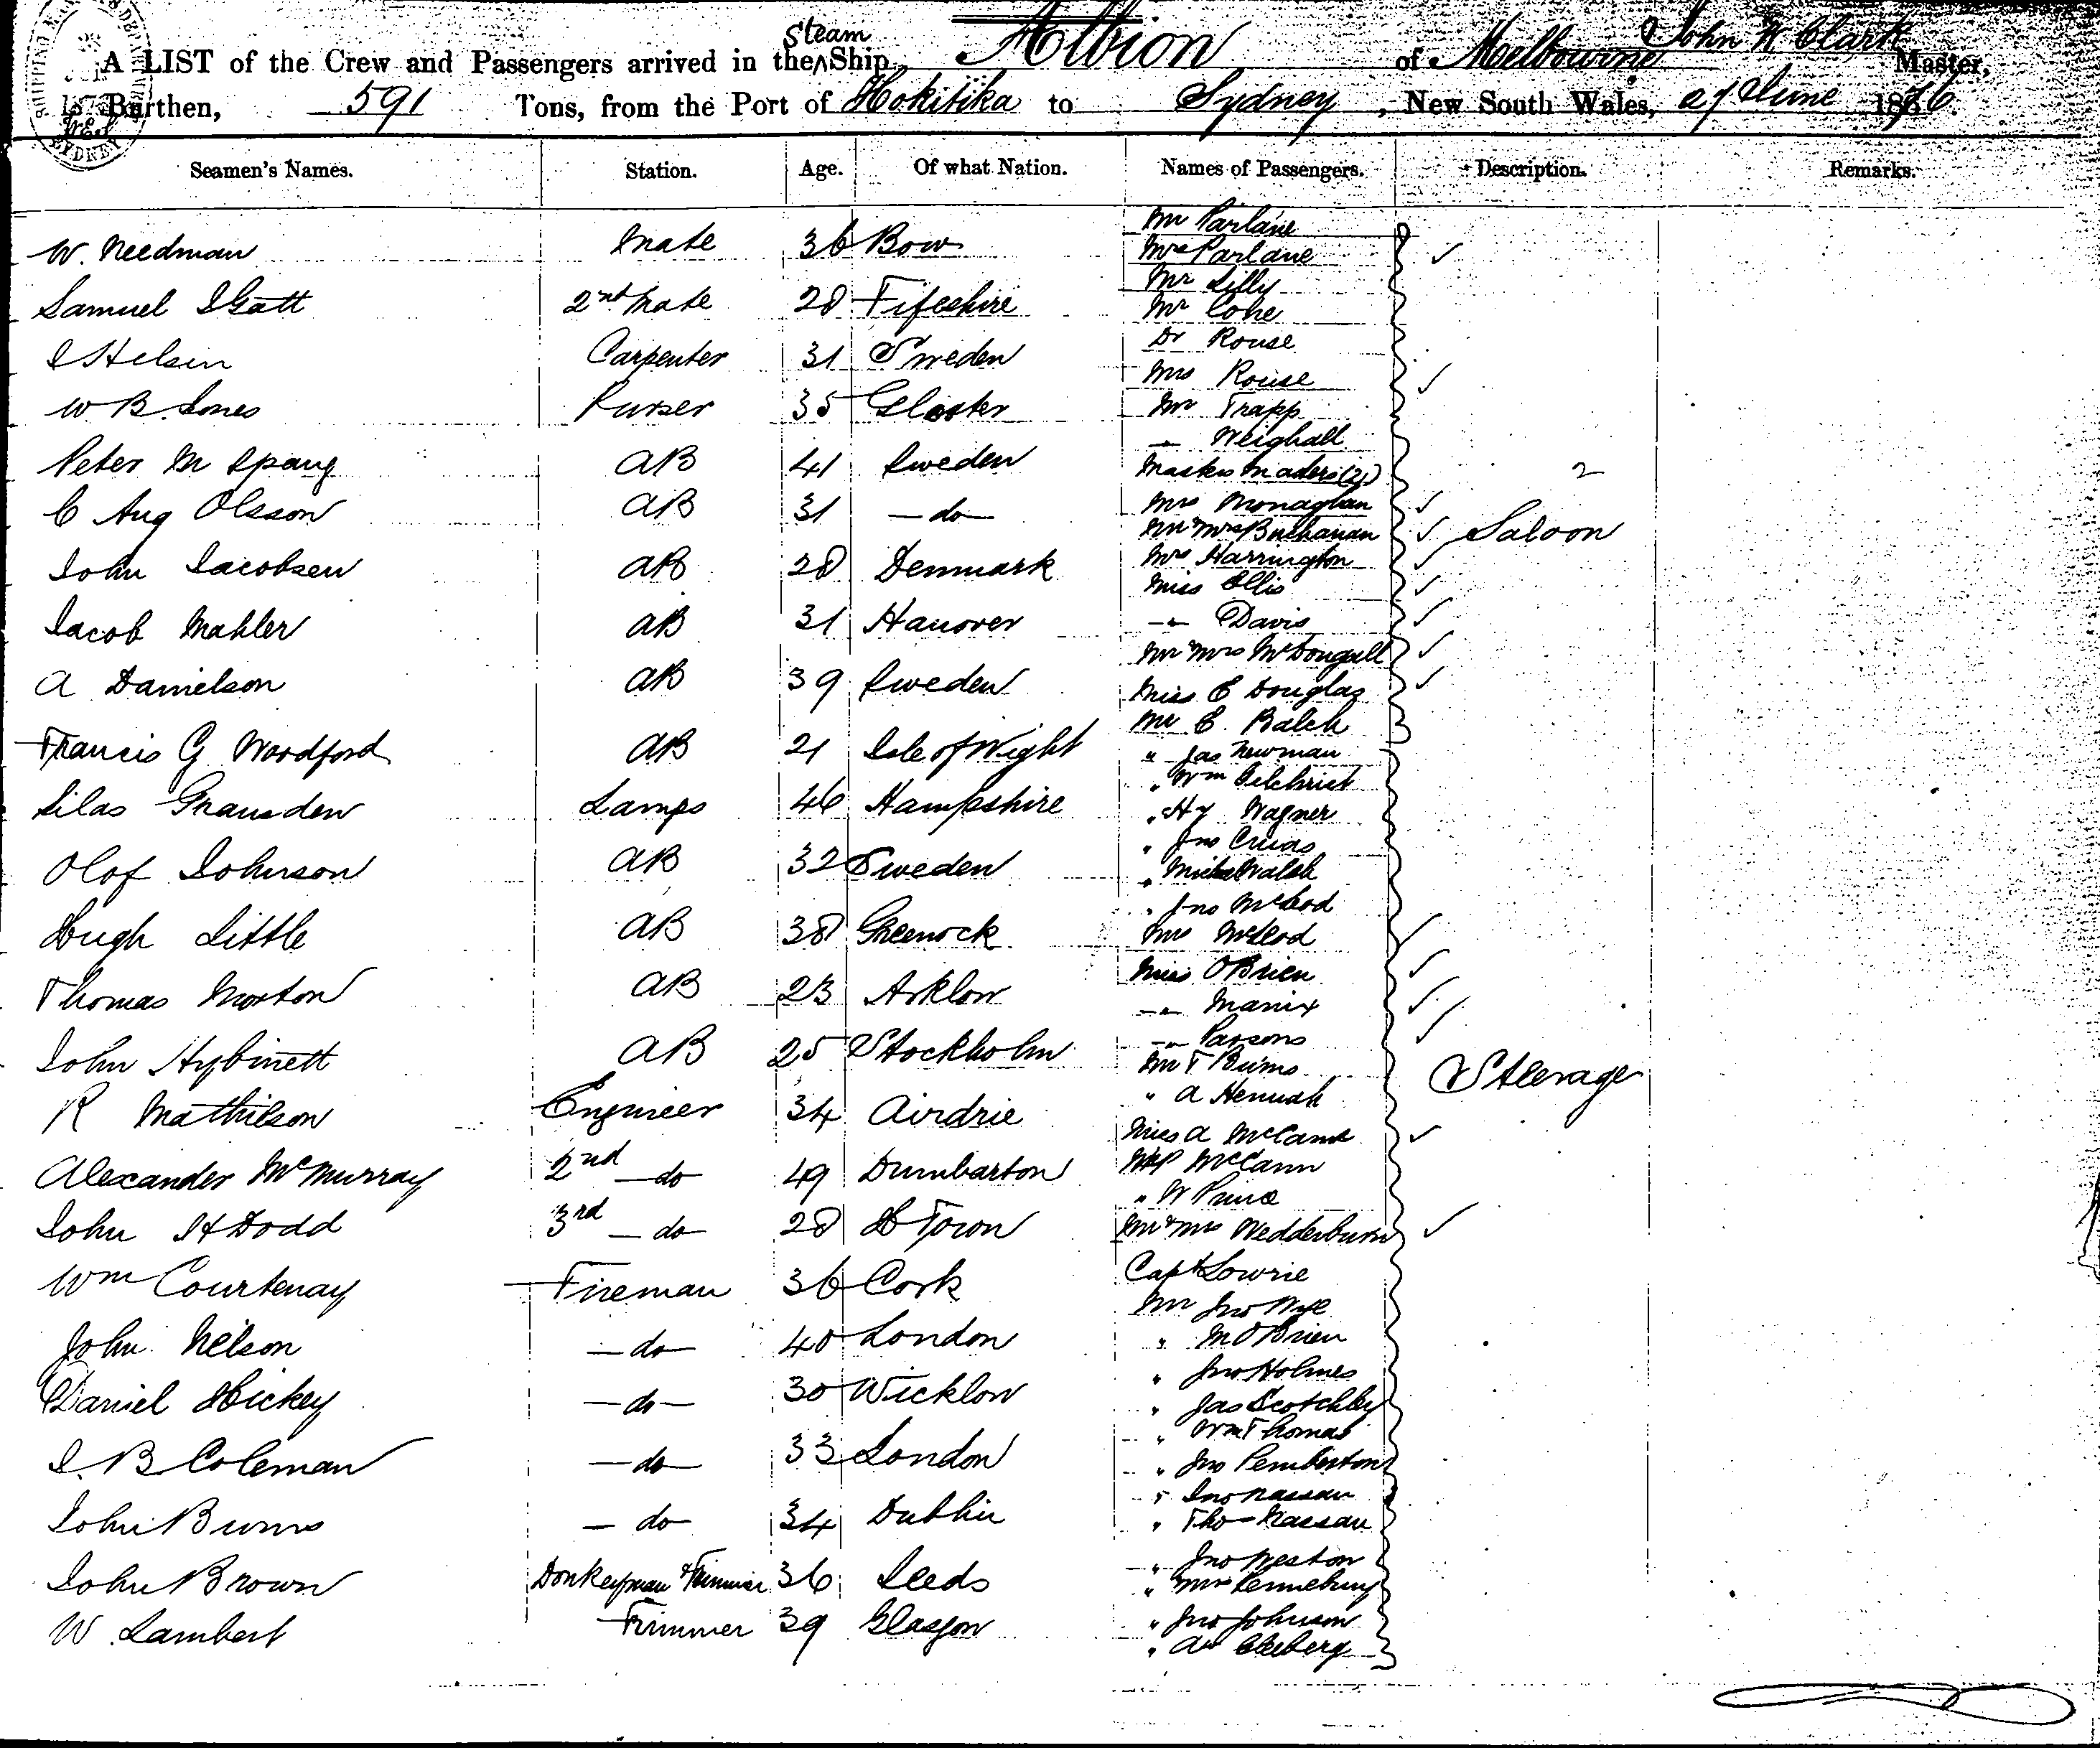 Steam
A LIST of the Crew and Passengers arrived in the Ship Albion of Melbourne John Clark Master,
Burthen, 591 Tons, from the Port of Hokitika to Sydney, New South Wales, 27 June 1876
Seamen's Names. Station. Age. Of what Nation. Names of Passengers. Description. Remarks.
Mr Parlane
W. Needman Mate 36 Bow
Mrs Parlane
Mr Lilly
Samuel 2nd Mate 28 Fifeshire
Mr Cohe
Dr Rouse
Carpenter 31 Sweden
Mrs Rouse
W B. Jones Purser 35 Gloster
Mr Trapp
Weighall
Peter M Spang AB 41 Sweden
Masters Maders (2) 2
C Aug Olsson AB 31 - do -
Mrs Monaghan
Mr Mrs Buchanan Saloon
John Jacobsen AB 28 Denmark
Mrs Harrington
Miss Ellis
Jacob Mahler AB 31 Hanover
Davis
Mr Mrs McDougall
A Danielson AB 39 Sweden
Miss E Douglas
Mr C. Balch
Francis G Woodford AB 21 Isle of Wight
" Jas Newman
" Wm Gilchrist
Silas Gransden Lamps 46 Hampshire
" Hy Wagner
" Jno
Olof Johnson AB 32 Sweden
" Walsh
" Jno McLeod
Hugh Little AB 38 Greenock
Mrs McLeod
Miss O'Brien
Thomas Morton AB 23 Arklow
Manix
Parsons
John Hybinett AB 25 Stockholm
Mr T Burns
Steerage
" A
R Mathieson Engineer 34 Airdrie
Miss A McCann
Alexander McMurray 2nd - do 49 Dumbarton
P McCann
" W
John H Dodd 3rd - do 28 H Town
Mr & Mrs Wedderburn
Wm Courtenay Fireman 36 Cork
Capt Lowrie
Mr Jno Nye
John Nelson - do - 40 London
" M O'Brien
" Jno Holmes
Daniel Hickey - do - 30 Wicklow
" Jas Scotchby
" Wm Thomas
J. B Coleman - do - 33 London
" Jno Pemberton
" Jno Nassau
John Burns - do 34 Dublin
" Tho Nassau
" Jno Weston
John Brown Donkeyman & Trimmer 36 Leeds
" Mrs
W. Lambert Trimmer 39 Glasgow
" Jno Johnson
"